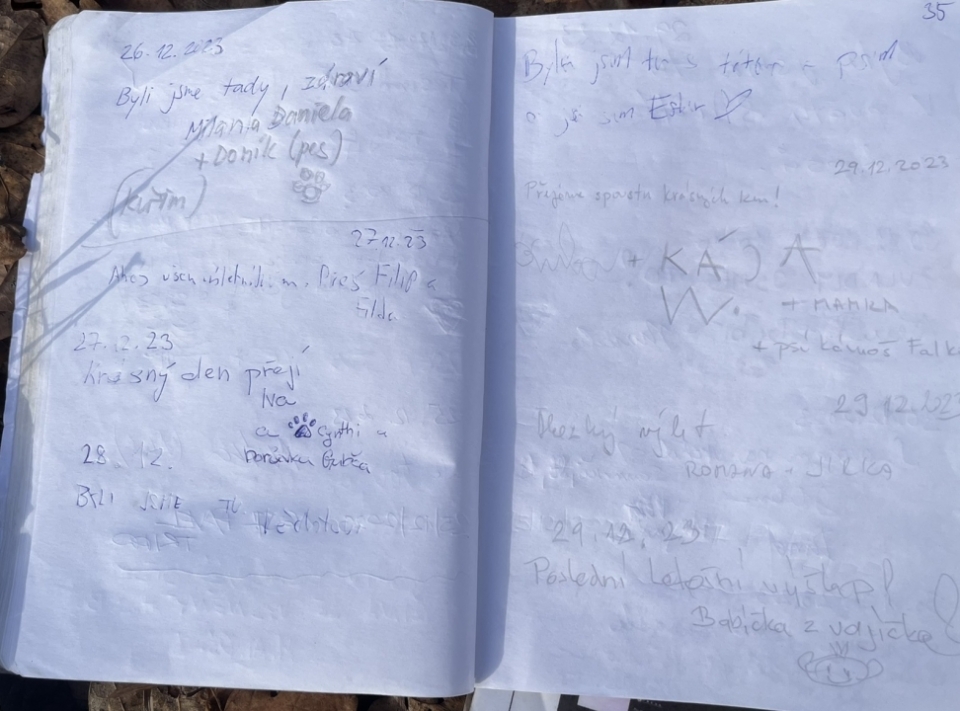 26.12.2023
Byli jsme tady, zdraví
Milania Daniela
+ Doník (pes)
(Kuřim)
27.12.23
Ahoj všem Přeš Filip a
27.12.23
krásný den přejí
Iva
a Cynthi a
28.12.
BYLI JSME TU
35
Byla jsem tu s tátou a psem
a já jsem Ester
29.12.2023
Přejeme spoustu krásných km!
+ KÁJA
W. + MAMKA
+ psí kámoš Falk
29.12.2023
Hezký výlet
ROMANA + JIRKA
29.12.23
Poslední letošní výšlap!
Babička z vajíčka